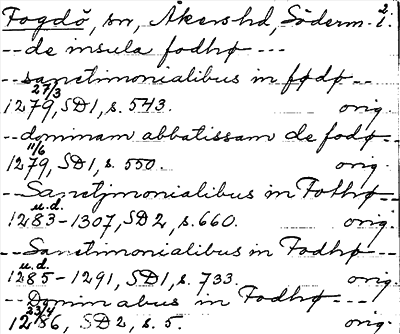 Fogdö, sn, Åkers hd, Söderm. l. 2
--de insula fodhø ---
--sanctimonialibus in fødø--
27/3
1279, SD1, s. 543. orig.
--dominam abbatissam de fodø--
11/6
1279, SD1, s. 550. orig.
--Sanctjmonialibus in Fothø--
u.d.
1283-1307, SD2, s. 660. orig.
---Sanctimonialibus in Fodhø---
u.d.
1285-1291, SD1, s. 733. orig.
--Dominabus in Fodhø---
23/4
1286, SD2, s. 5. orig.